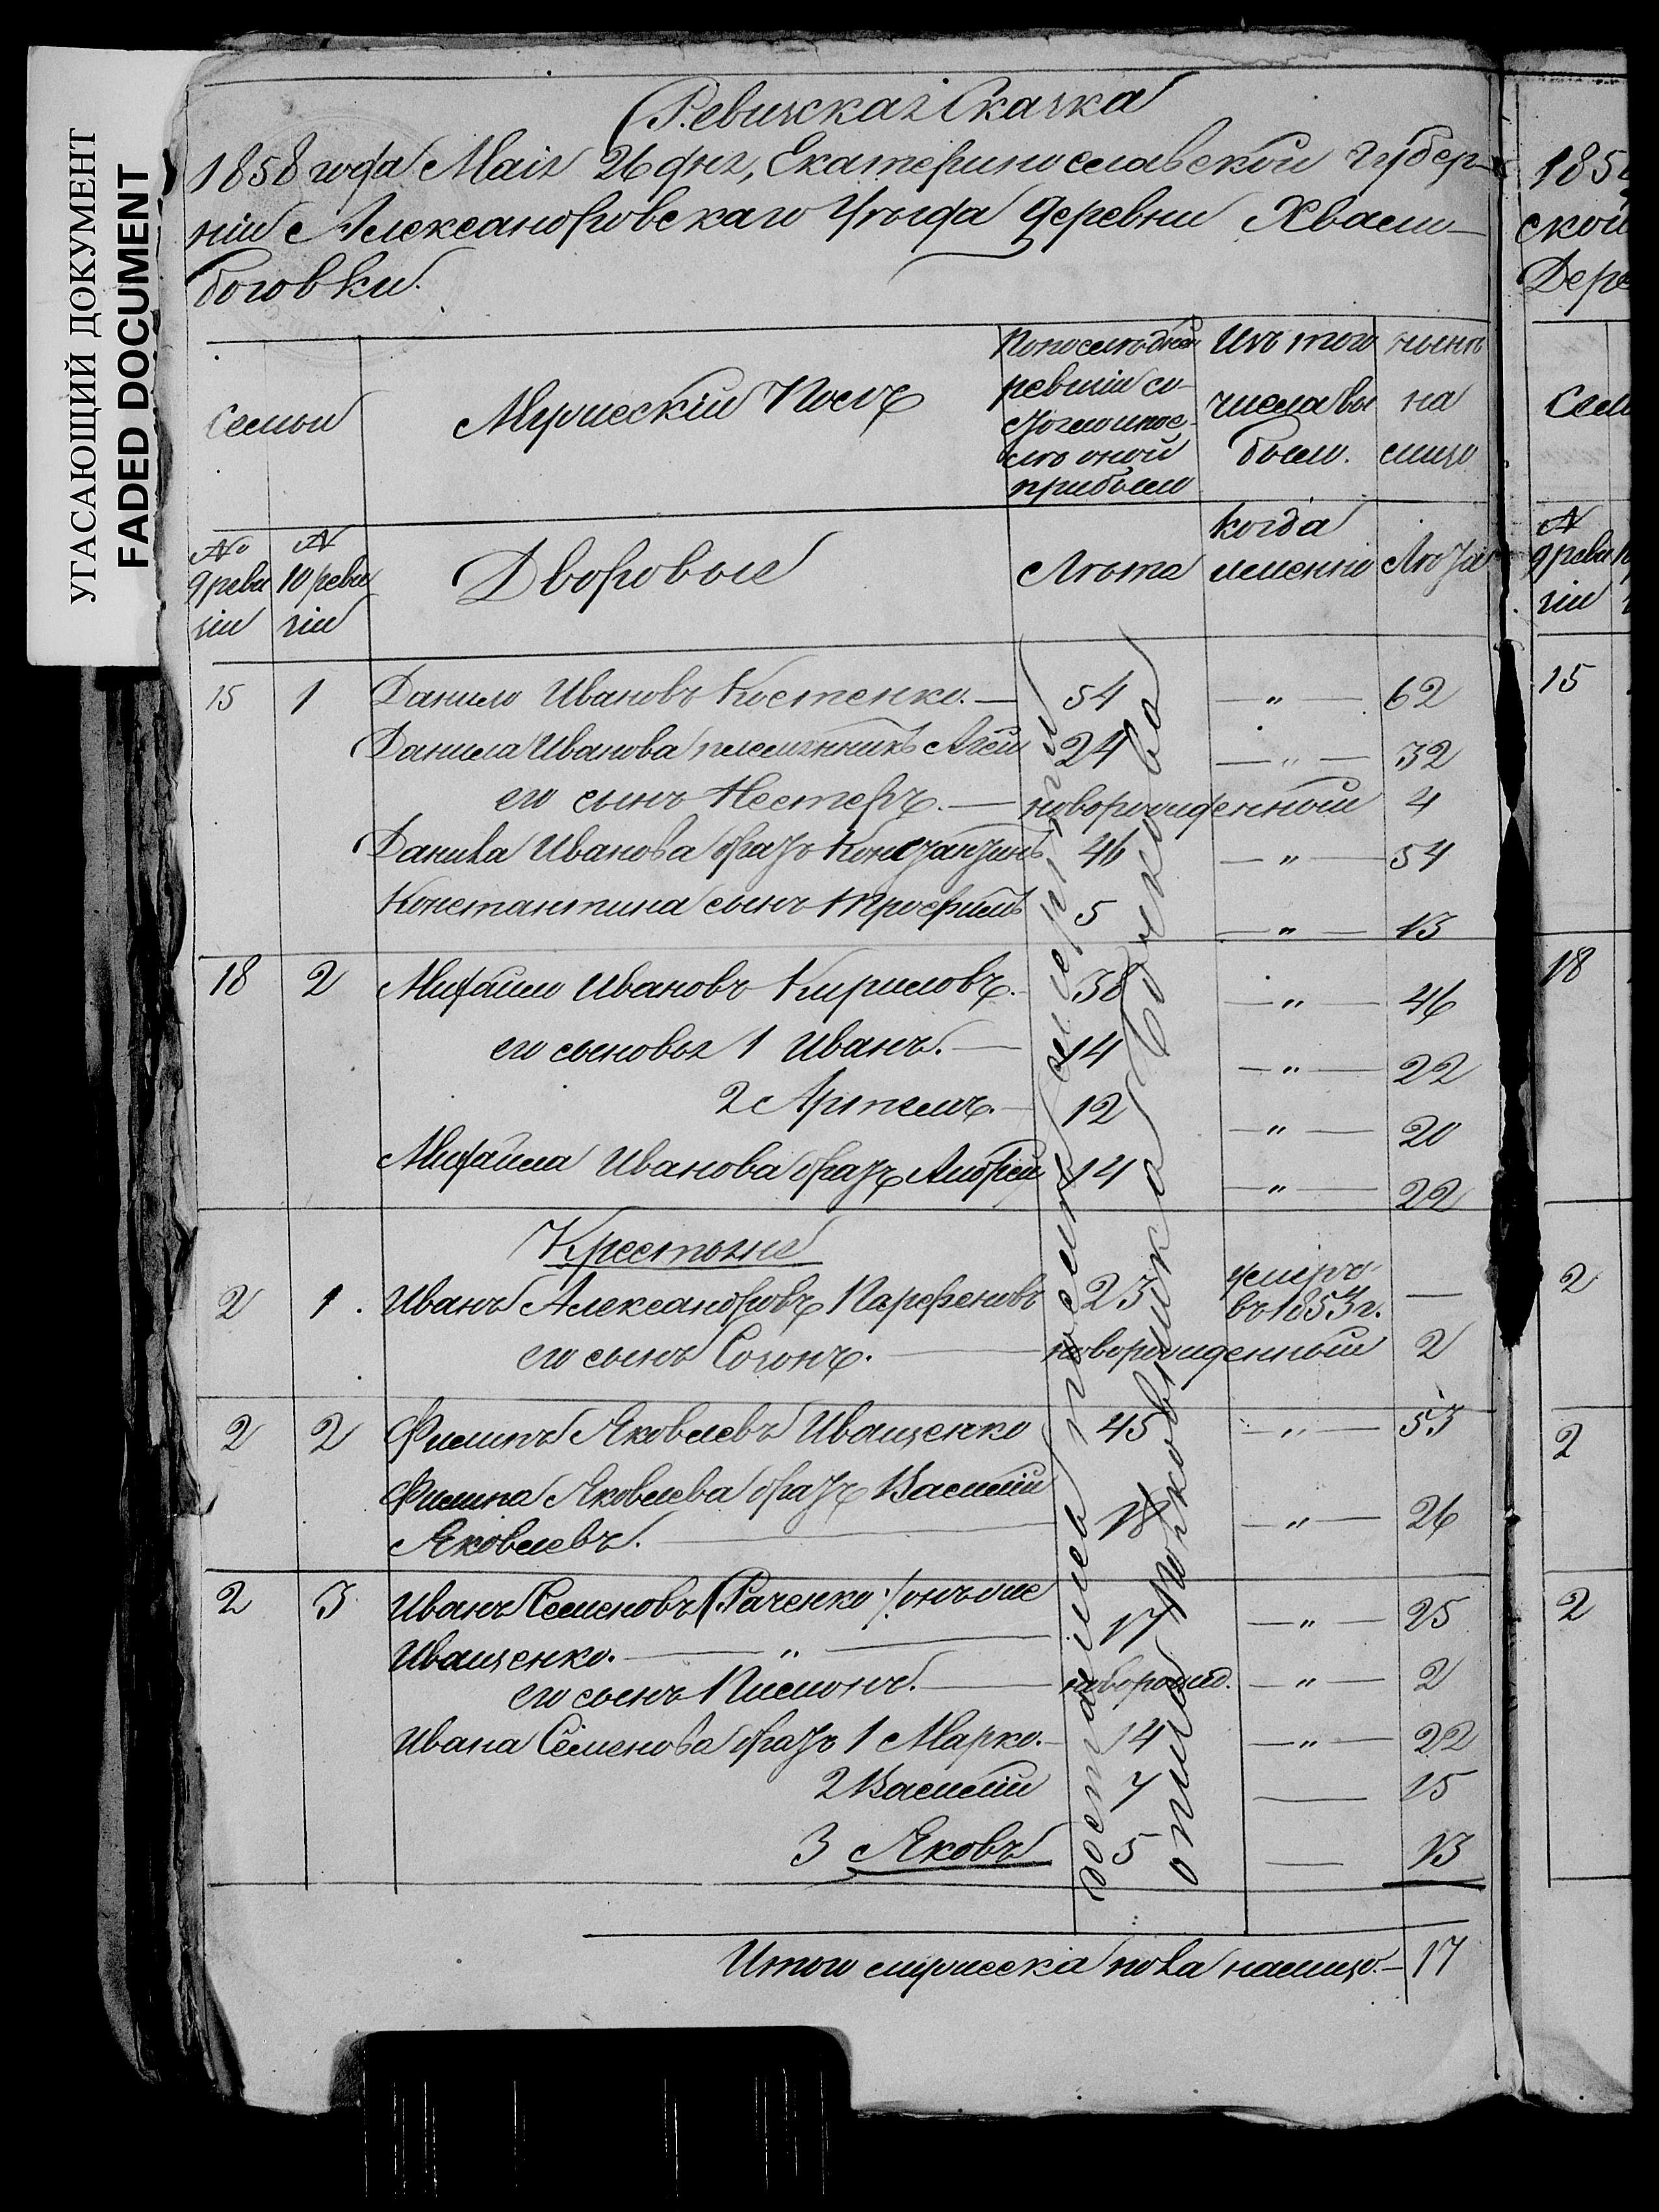 УГАСАЮЩИЙ ДОКУМЕНТ
FADED DOCUMENT
Ревизская Сказка
1858 года Маія 26 дня, Екатеринославской Губер-
ніи Александровскаго Уѣзда деревни Хвали-
боговки.
Семьи
Мужескій Полъ
По последней
ревизіи со-
стояло и пос-
лѣ оной
прибыло
Изъ того
числа вы
было.
нынѣ
на
лицо
№
9 реви
зіи
№
10 реви
зіи
Дворовые
Лѣта
когда
именно
Лѣта
15 1 Данило Ивановъ Костенко. — 54 — " — 62
Данила Иванова племянникъ Агей 24 — " — 32
его сынъ Нестеръ. — новорожденный 4
Данила Иванова братъ Константинъ 46 — " — 54
Константина сынъ Трофимъ 5 — " — 13
18 2 Михайло Ивановъ Кириловъ. 38 — " — 46
его сыновья 1 Иванъ. — 14 — " — 22
2 Артемъ. — 12 — " — 20
Михайла Иванова братъ Андрей 14 — " — 22
Крестьяне
2 1. Иванъ Александровъ Парфеновъ 23 умеръ въ 1853 г. —
его сынъ Созонъ. — новорожденный 2
2 2 Филипъ Яковлевъ Иващенко 45 — " — 53
Филипа Яковлева братъ Василій
Яковлевъ. — 18 — " — 26
2 3 Иванъ Семеновъ (Раченко:/ онъ же
Иващенко. — " — 17 — " — 25
его сынъ Пилипъ. — новорожд. — " — 2
Ивана Семенова братъ 1 Марко. — 14 — " — 22
2 Василій 7 — 15
3 Яковъ 5 — 13
Итого мужеска пола налицо. — 17
достались после смерти
отца Полковника
1858
ской
Дере
Семь
№
9 реви
зіи
15
18
2
2
2